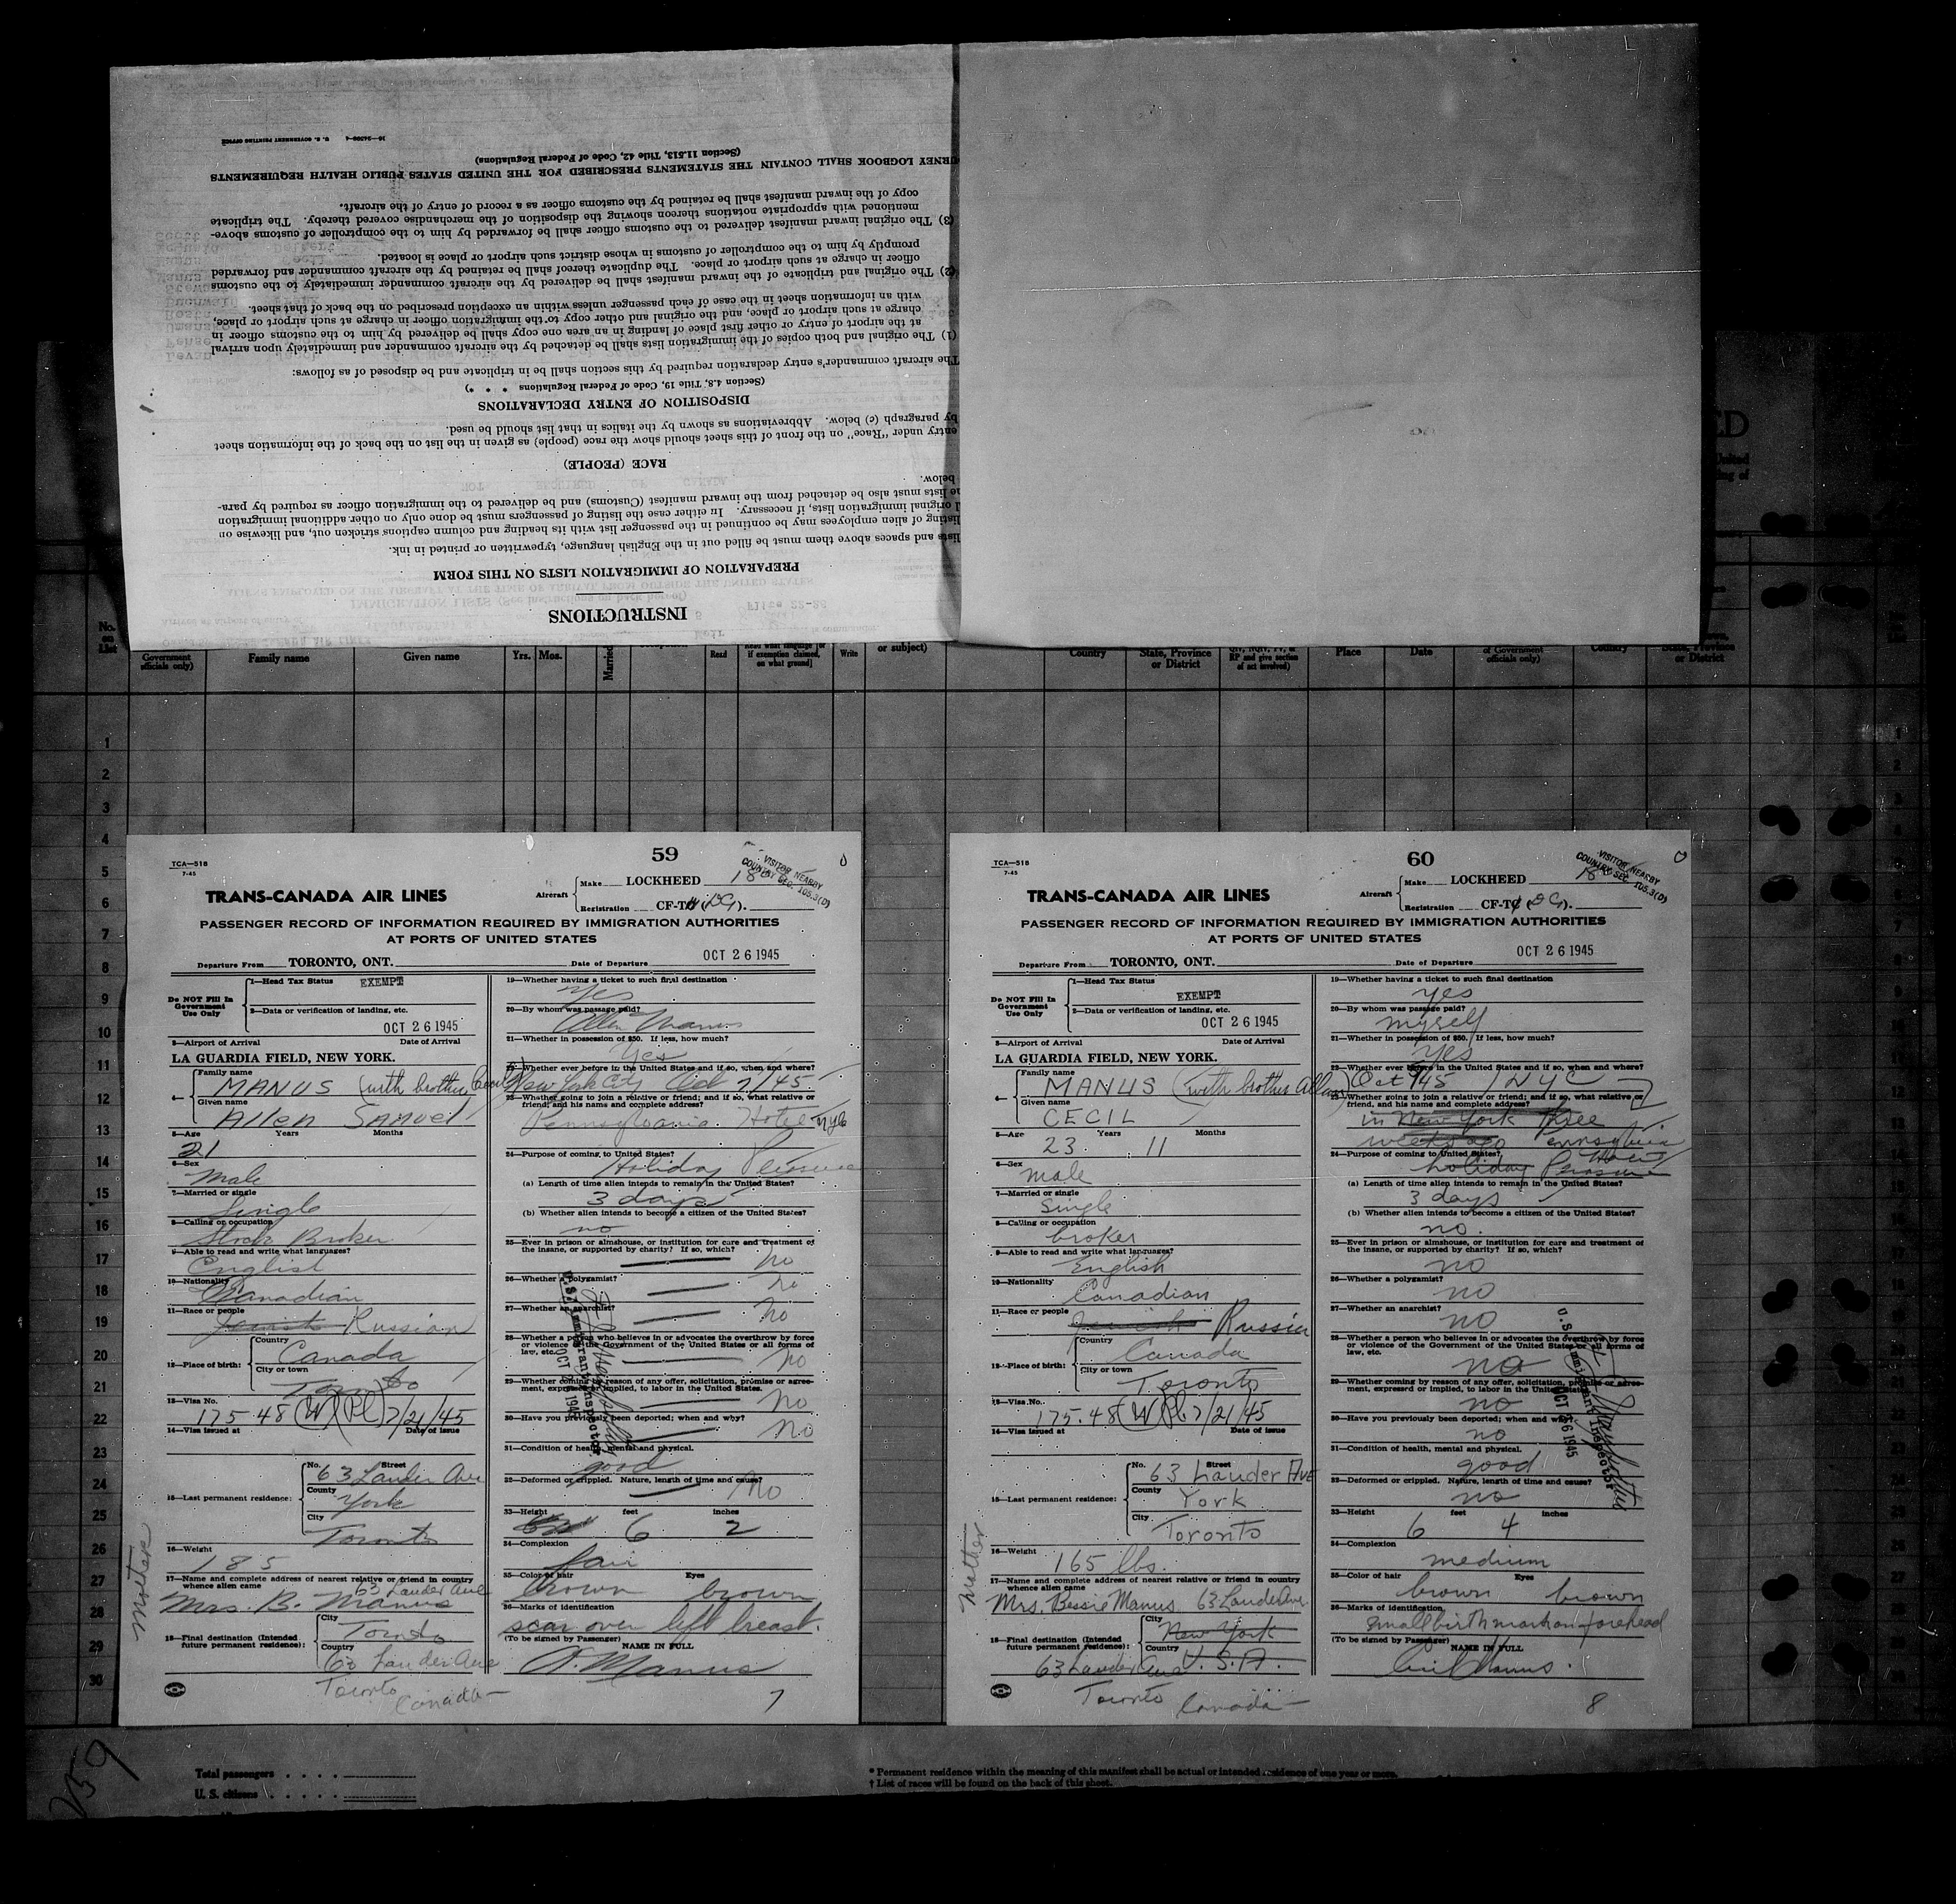 INSTRUCTIONS
PREPARATION OF IMMIGRATION LISTS ON THIS FORM
lists and spaces above them must be filled out in the English language, typewritten or printed in ink.
listing of alien employees may be continued in the passenger list with its heading and column captions stricken out, and likewise on
original immigration lists, if necessary. In either case the listing of passengers must be done only on other additional immigration
lists must also be detached from the inward manifest (Customs) and be delivered to the immigration officer as required by para-
below.
RACE (PEOPLE)
entry under "Race" on the front of this sheet should show the race (people) as given in the list on the back of the information sheet
by paragraph (c) below. Abbreviations as shown by the italics in that list should be used.
DISPOSITION OF ENTRY DECLARATIONS
(Section 4.8, Title 19, Code of Federal Regulations * * *)
The aircraft commander's entry declaration required by this section shall be in triplicate and be disposed of as follows:
(1) The original and both copies of the immigration lists shall be detached by the aircraft commander and immediately upon arrival
at the airport of entry or other first place of landing in an area one copy shall be delivered by him to the customs officer in
charge at such airport or place, and the original and other copy to the immigration officer in charge at such airport or place,
with an information sheet in the case of each passenger unless within an exception prescribed on the back of that sheet.
(2) The original and triplicate of the inward manifest shall be delivered by the aircraft commander immediately to the customs
officer in charge at such airport or place. The duplicate thereof shall be retained by the aircraft commander and forwarded
promptly by him to the comptroller of customs in whose district such airport or place is located.
(3) The original inward manifest delivered to the customs officer shall be forwarded by him to the comptroller of customs above-
mentioned with appropriate notations thereon showing the disposition of the merchandise covered thereby. The triplicate
copy of the inward manifest shall be retained by the customs officer as a record of entry of the aircraft.
URNEY LOGBOOK SHALL CONTAIN THE STATEMENTS PRESCRIBED FOR THE UNITED STATES PUBLIC HEALTH REQUIREMENTS
(Section 11.513, Title 42, Code of Federal Regulations)
16—24300-4 U. S. GOVERNMENT PRINTING OFFICE
No. on List
Government officials only)
Family name
Given name
Yrs. Mos.
Married
Read
if exemption claimed, on what ground)
Write
or subject)
Country
State, Province or District
RP and give section of act involved)
Place
Date
of Government officials only)
Country
State, Province or District
1
2
3
4
5
6
7
8
9
10
11
12
13
14
15
16
17
18
19
20
21
22
23
24
25
26
27
28
29
30
59
TCA—518
7-45
TRANS-CANADA AIR LINES
Aircraft Make LOCKHEED 18
Registration CF-T
VISITOR NEARBY
COUNTRY SEC. 105.3(D)
PASSENGER RECORD OF INFORMATION REQUIRED BY IMMIGRATION AUTHORITIES
AT PORTS OF UNITED STATES
Departure From TORONTO, ONT. Date of Departure OCT 26 1945
Do NOT Fill In Government Use Only
1—Head Tax Status EXEMPT
2—Data or verification of landing, etc.
OCT 26 1945
3—Airport of Arrival Date of Arrival
LA GUARDIA FIELD, NEW YORK.
4— Family name
MANUS (with brother Cecil)
Given name
Allen Samuel
5—Age Years Months
21
6—Sex
Male
7—Married or single
Single
8—Calling or occupation
Stock Broker
9—Able to read and write what languages?
English
10—Nationality
Canadian
11—Race or people
Jewish Russian
12—Place of birth: Country
Canada
City or town
Toronto
13—Visa No.
175.48 (W)(PL) 7/21/45
14—Visa issued at Date of issue
15—Last permanent residence: No. Street
63 Lauder Ave
County
York
City
Toronto
16—Weight
185
17—Name and complete address of nearest relative or friend in country whence alien came
63 Lauder Ave
Mrs. B. Manus
Mother
18—Final destination (Intended future permanent residence): City
Toronto
Country
63 Lauder Ave
Toronto Canada
19—Whether having a ticket to such final destination
Yes
20—By whom was passage paid?
Allen Manus
21—Whether in possession of $50. If less, how much?
Yes
22—Whether ever before in the United States and if so, when and where?
New York City Oct 7/45
23—Whether going to join a relative or friend; and if so, what relative or friend, and his name and complete address?
Pennsylvania Hotel NYC
24—Purpose of coming to United States?
Holiday Pleasure
(a) Length of time alien intends to remain in the United States?
3 days
(b) Whether alien intends to become a citizen of the United States?
no
25—Ever in prison or almshouse, or institution for care and treatment of the insane, or supported by charity? If so, which?
No
26—Whether a polygamist?
No
27—Whether an anarchist?
No
28—Whether a person who believes in or advocates the overthrow by force or violence of the Government of the United States or all forms of law, etc.
No
29—Whether coming by reason of any offer, solicitation, promise or agreement, expressed or implied, to labor in the United States.
No
30—Have you previously been deported; when and why?
No
31—Condition of health, mental and physical.
good
32—Deformed or crippled. Nature, length of time and cause?
No
33—Height feet inches
6 2
34—Complexion
fair
35—Color of hair Eyes
brown brown
36—Marks of identification
scar over left breast.
(To be signed by Passenger) NAME IN FULL
A. Manus
7
U.S. Immigrant Inspector
OCT 26 1945
60
TCA—518
7-45
TRANS-CANADA AIR LINES
Aircraft Make LOCKHEED 18
Registration CF-T
VISITOR NEARBY
COUNTRY SEC. 105.3(D)
PASSENGER RECORD OF INFORMATION REQUIRED BY IMMIGRATION AUTHORITIES
AT PORTS OF UNITED STATES
Departure From TORONTO, ONT. Date of Departure OCT 26 1945
Do NOT Fill In Government Use Only
1—Head Tax Status
EXEMPT
2—Data or verification of landing, etc.
OCT 26 1945
3—Airport of Arrival Date of Arrival
LA GUARDIA FIELD, NEW YORK.
4— Family name
MANUS (with brother Allan)
Given name
CECIL
5—Age Years Months
23 11
6—Sex
male
7—Married or single
Single
8—Calling or occupation
broker
9—Able to read and write what languages?
English
10—Nationality
Canadian
11—Race or people
Jewish Russian
12—Place of birth: Country
Canada
City or town
Toronto
13—Visa No.
175.48 (W)(PL) 7/21/45
14—Visa issued at Date of issue
15—Last permanent residence: No. Street
63 Lauder Ave
County
York
City
Toronto
16—Weight
165 lbs.
17—Name and complete address of nearest relative or friend in country whence alien came
Mrs. Bessie Manus 63 Lauder Ave
Mother
18—Final destination (Intended future permanent residence): City
New York
Country
63 Lauder Ave U.S.A.
Toronto Canada
19—Whether having a ticket to such final destination
yes
20—By whom was passage paid?
myself
21—Whether in possession of $50. If less, how much?
yes
22—Whether ever before in the United States and if so, when and where?
Oct 45 NYC
23—Whether going to join a relative or friend; and if so, what relative or friend, and his name and complete address?
in New York three
weeks ago Pennsylvania
Hotel
24—Purpose of coming to United States?
holiday Pleasure
(a) Length of time alien intends to remain in the United States?
3 days
(b) Whether alien intends to become a citizen of the United States?
no.
25—Ever in prison or almshouse, or institution for care and treatment of the insane, or supported by charity? If so, which?
no
26—Whether a polygamist?
no
27—Whether an anarchist?
no
28—Whether a person who believes in or advocates the overthrow by force or violence of the Government of the United States or all forms of law, etc.
no
29—Whether coming by reason of any offer, solicitation, promise or agreement, expressed or implied, to labor in the United States.
no
30—Have you previously been deported; when and why?
no
31—Condition of health, mental and physical.
good
32—Deformed or crippled. Nature, length of time and cause?
no
33—Height feet inches
6 4
34—Complexion
medium
35—Color of hair Eyes
brown brown
36—Marks of identification
small birth mark on forehead
(To be signed by Passenger) NAME IN FULL
Cecil Manus.
8
U.S. Immigrant Inspector
OCT 26 1945
259
Total passengers
U. S. citizens
* Permanent residence within the meaning of this manifest shall be actual or intended residence of one year or more.
† List of races will be found on the back of this sheet.